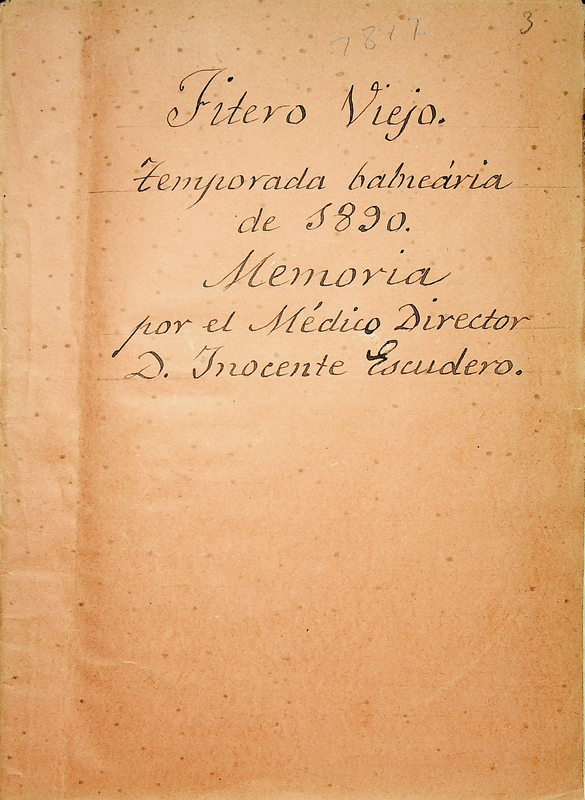 3
Fitero Viejo.
temporada balneária
de 1890.
Memoria
por el Médico Director
D. Inocente Escudero.